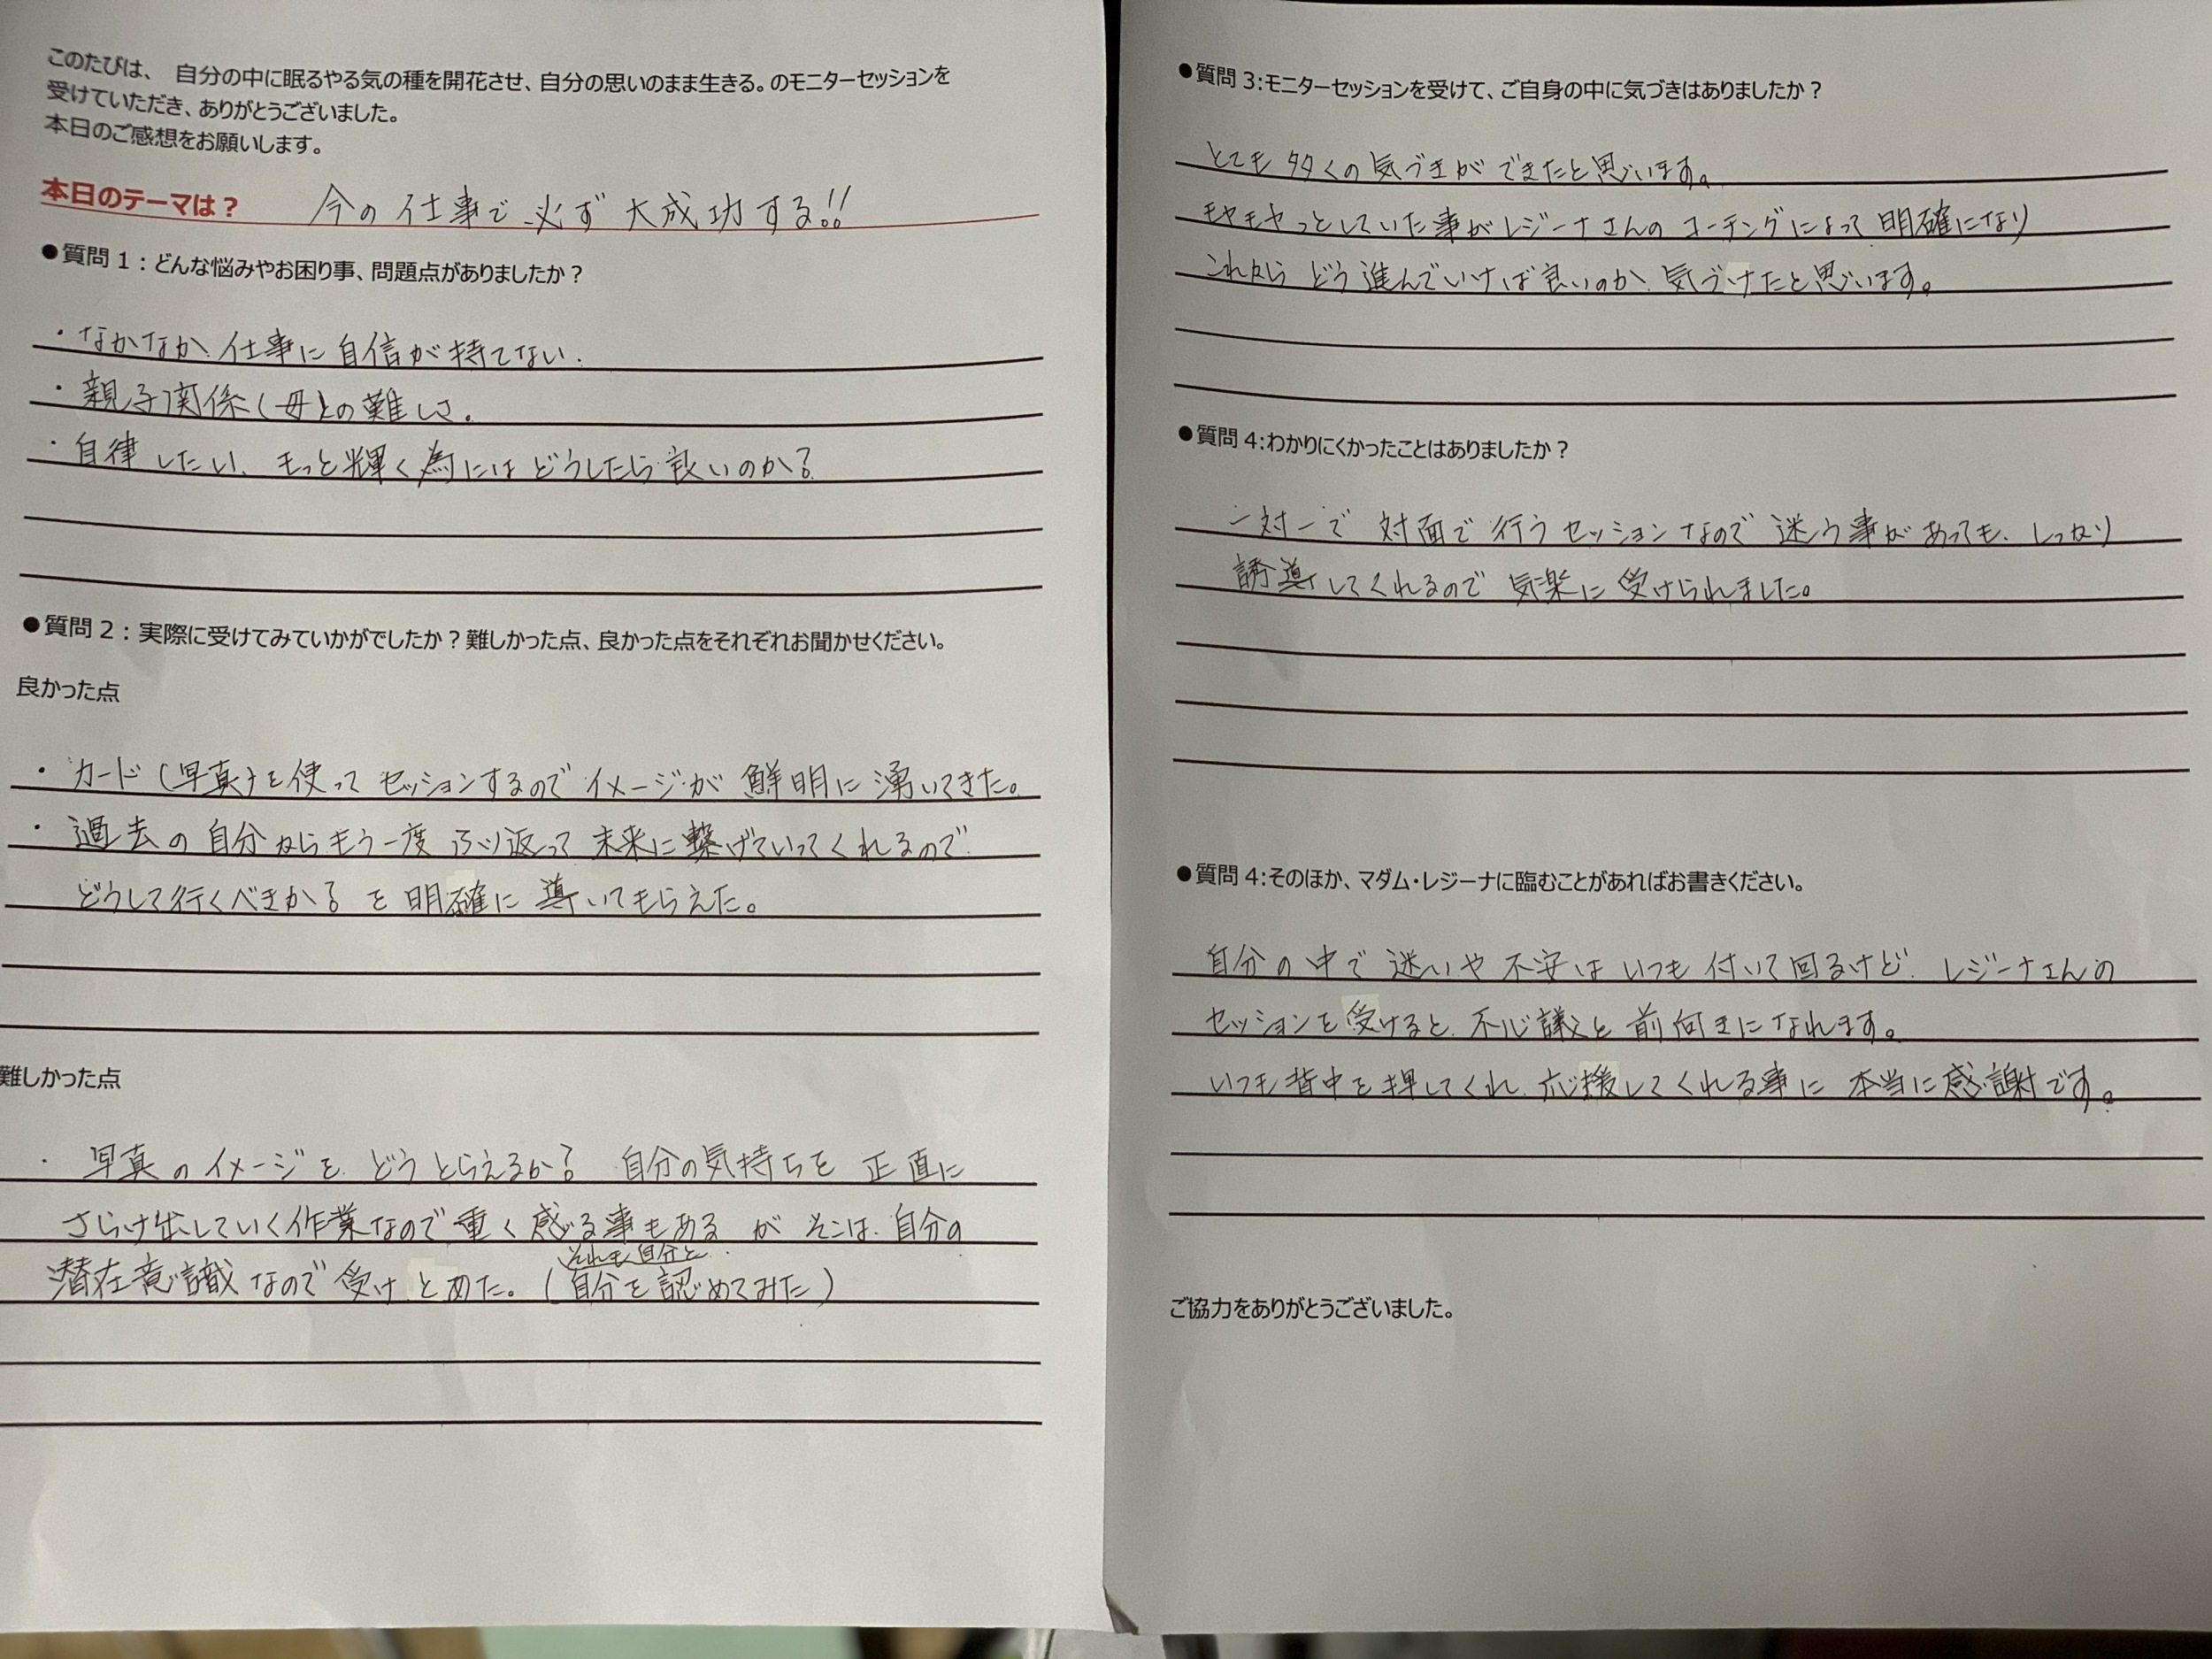 このたびは、 自分の中に眠るやる気の種を開花させ、自分の思いのまま生きる。のモニターセッションを
受けていただき、ありがとうございました。
本日のご感想をお願いします。
本日のテーマは？ 今の仕事で必ず大成功する!!
●質問1：どんな悩みやお困り事、問題点がありましたか？
・なかなか、仕事に自信が持てない.
・親子関係(母)との難しさ。
・自律したい、もっと輝く為にはどうしたら良いのか?
●質問2：実際に受けてみていかがでしたか？難しかった点、良かった点をそれぞれお聞かせください。
良かった点
・カード(写真)を使ってセッションするのでイメージが鮮明に湧いてきた。
・過去の自分からもう一度ふり返って未来に繋げていってくれるので
どうして行くべきか?を明確に導いてもらえた。
難しかった点
・写真のイメージを どうとらえるか? 自分の気持ちを正直に
さらけ出していく作業なので重く感る事もあるが そこは、自分の
潜在意識なので受けとめた。(それも自分と 自分を認めてみた)
●質問3:モニターセッションを受けて、ご自身の中に気づきはありましたか？
とても多くの気づきができたと思います。
モヤモヤっとしていた事がレジーナさんのコーチングによって明確になり
これからどう進んでいけば良いのか、気づけたと思います。
●質問4:わかりにくかったことはありましたか？
一対一で対面で行うセッションなので迷う事があっても、しっかり
誘導してくれるので気楽に受けられました。
●質問4:そのほか、マダム・レジーナに臨むことがあればお書きください。
自分の中で迷いや不安はいつも付いて回るけど、レジーナさんの
セッションを受けると、不心議と前向きになれます。
いつも背中を押してくれ、応援してくれる事に本当に感謝です。
ご協力をありがとうございました。